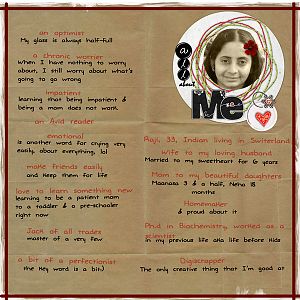 an optimist
My glass is always half-full
a chronic worrier
When I have nothing to worry
about, I still worry about what's
going to go wrong
impatient
learning that being impatient &
being a mom does not work
an Avid reader
emotional
is another word for crying very
easily, about everything, lol
make friends easily
and keep them for life
love to learn something new
learning to be a patient mom
to a toddler & a pre-schooler
right now
Jack of all trades
master of a very few
a bit of a perfectionist
(the key word is a bit)
all
about
Me
Raji, 33, Indian living in Switerland
Wife to my loving husband
Married to my sweetheart for 6 years
Mom to my beautiful daughters
Maanasa 3 & a half, Neha 18
months
Homemaker
& proud about it
Ph.d in Biochemistry, worked as a
scientist
in my previous life aka life before kids
Digiscrapper
The only creative thing that I'm good at